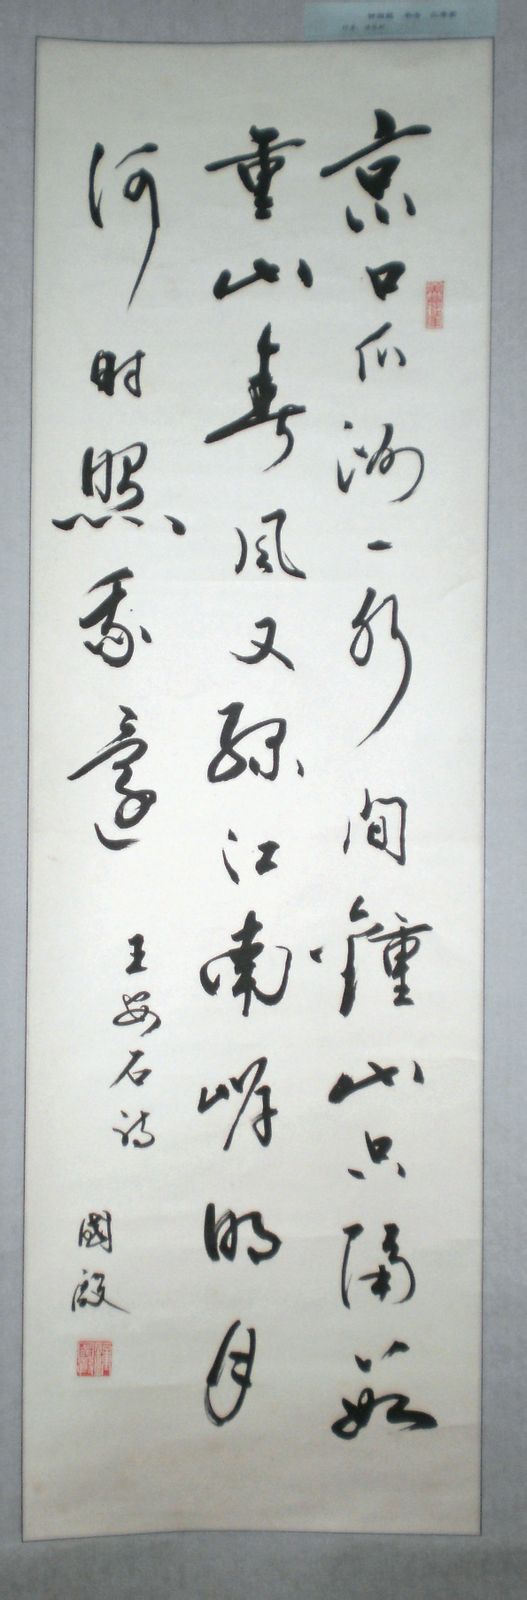 京口瓜洲一水间鍾山只隔数
重山春风又绿江南岸明月
何时照我還
王安石诗
國